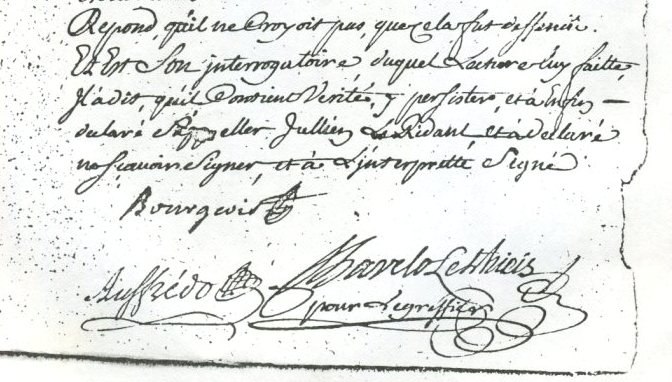 Repond qu'il ne Croyoit pas que Cela fut deffendu.
Et Est Son interrogatoire duquel Lecture Luy faitte
Il a dit qu'il Contient Verité, y persister, et a Enfin
declaré S'apeller Jullien Le Ridant et a declaré
ne Scavoir Signer, et a L'interprette Signé
Bourgeois
Auffrédo
pour Le greffier